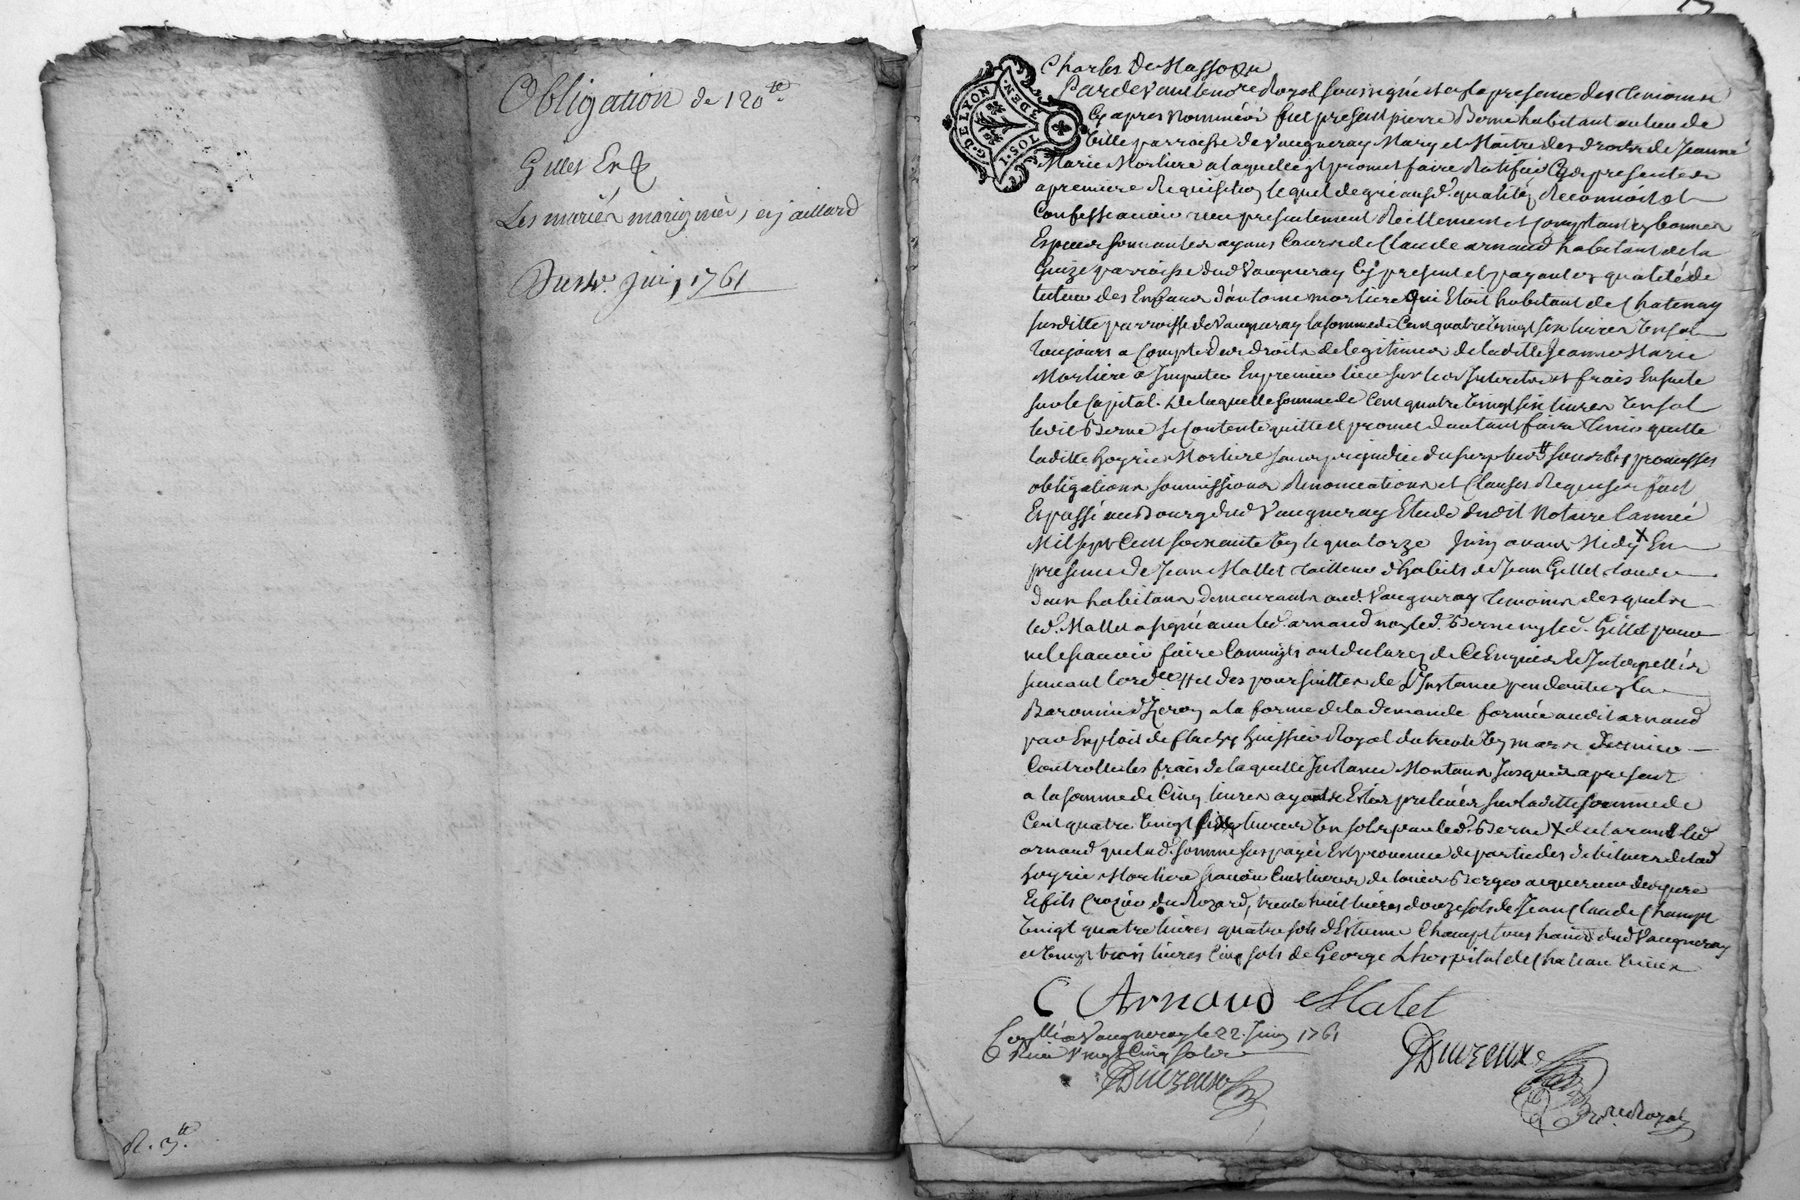 Obligation de 120 tt.
Gilles
Les mariés marignier, en jaillard
Du Juin 1761
R. 3 tt.
G. DE LYON
DEN.
Charles
Pardevant le nore Royal soussigné et en la presence des temoins
Cy apres nommés fut present pierre Berne habitant au lieu de
parroisse de Vaugneray Mary et Maitre des droits de Jeanne
Marie Morliere a laquelle il promet faire Ratifier Ces presentes a
a premiere Requisition lequel de gré aud. qualité Reconnoit et
Confesse avoir receu presentement Reellement et Comptant en bonnes
Especes sonnantes ayans Cours de Claude arnaud habitant de la
parroisse dud Vaugneray Cy present et payant en qualité de
tuteur des Enfans d'antoine morliere qui Etoit habitant de Chatenay
susditte parroisse de Vaugneray la somme de Cent quatre vingt six livres
toujours a Compte des droits de legitimes de laditte Jeanne Marie
Morliere a Imputer En premier lieu sur les Interets et frais Ensuite
sur le Capital. De laquelle somme de Cent quatre vingt six livres
ledit Berne se Contente quitte et promet d'autant faire tenir quitte
laditte hoyrie Morliere sans prejudice du surplus sous les promesses
obligations soumissions Renonciations et Clauses Requises fait
Et passé au Bourg dud Vaugneray Etude dudit Notaire l'année
Mil sept Cent soixante Un le quatorze Juin avant Midy x En
presence de Jean Mallet tailleur d'habits et Jean Gillet
deux habitans demeurants aud. Vaugneray temoins desquels
led. Mallet a signé avec led. arnaud non led. Berne ny led. Gillet pour
ne le sçavoir faire Comme ils ont declaré de Ce Enquis et Interpellés
suivant l'ordce et des poursuittes de l'Instance pendante en la
Baronnie d'Izeron a la forme de la demande formée audit arnaud
par Exploit de huissier Royal du trente Un mars dernier
Controllé les frais de laquelle Instance Montant Jusques a present
a la somme de Cinq livres ayant Etés prelevés sur laditte somme de
Cent quatre vingt livres par led. Berne x declarant led
arnaud que lad. somme sus payée Est provenue de partie des debiteurs de lad
hoyrie Morliere sçavoir Cent livres de Berger acquereur des pere
Et fils Crozier du Rozard, trente huit livres douze sols de Jean Claude Champt
Vingt quatre livres quatre sols d'Estienne Champt tous hants dud Vaugneray
et Vingt trois livres Cinq sols de George Lhospital de Chateau Vieux
C Arnaud Malet
Conllé a Vaugneray le 22. Juin 1761
Receu Vingt Cinq sols
Duizeux
Duizeux
Nore Royal